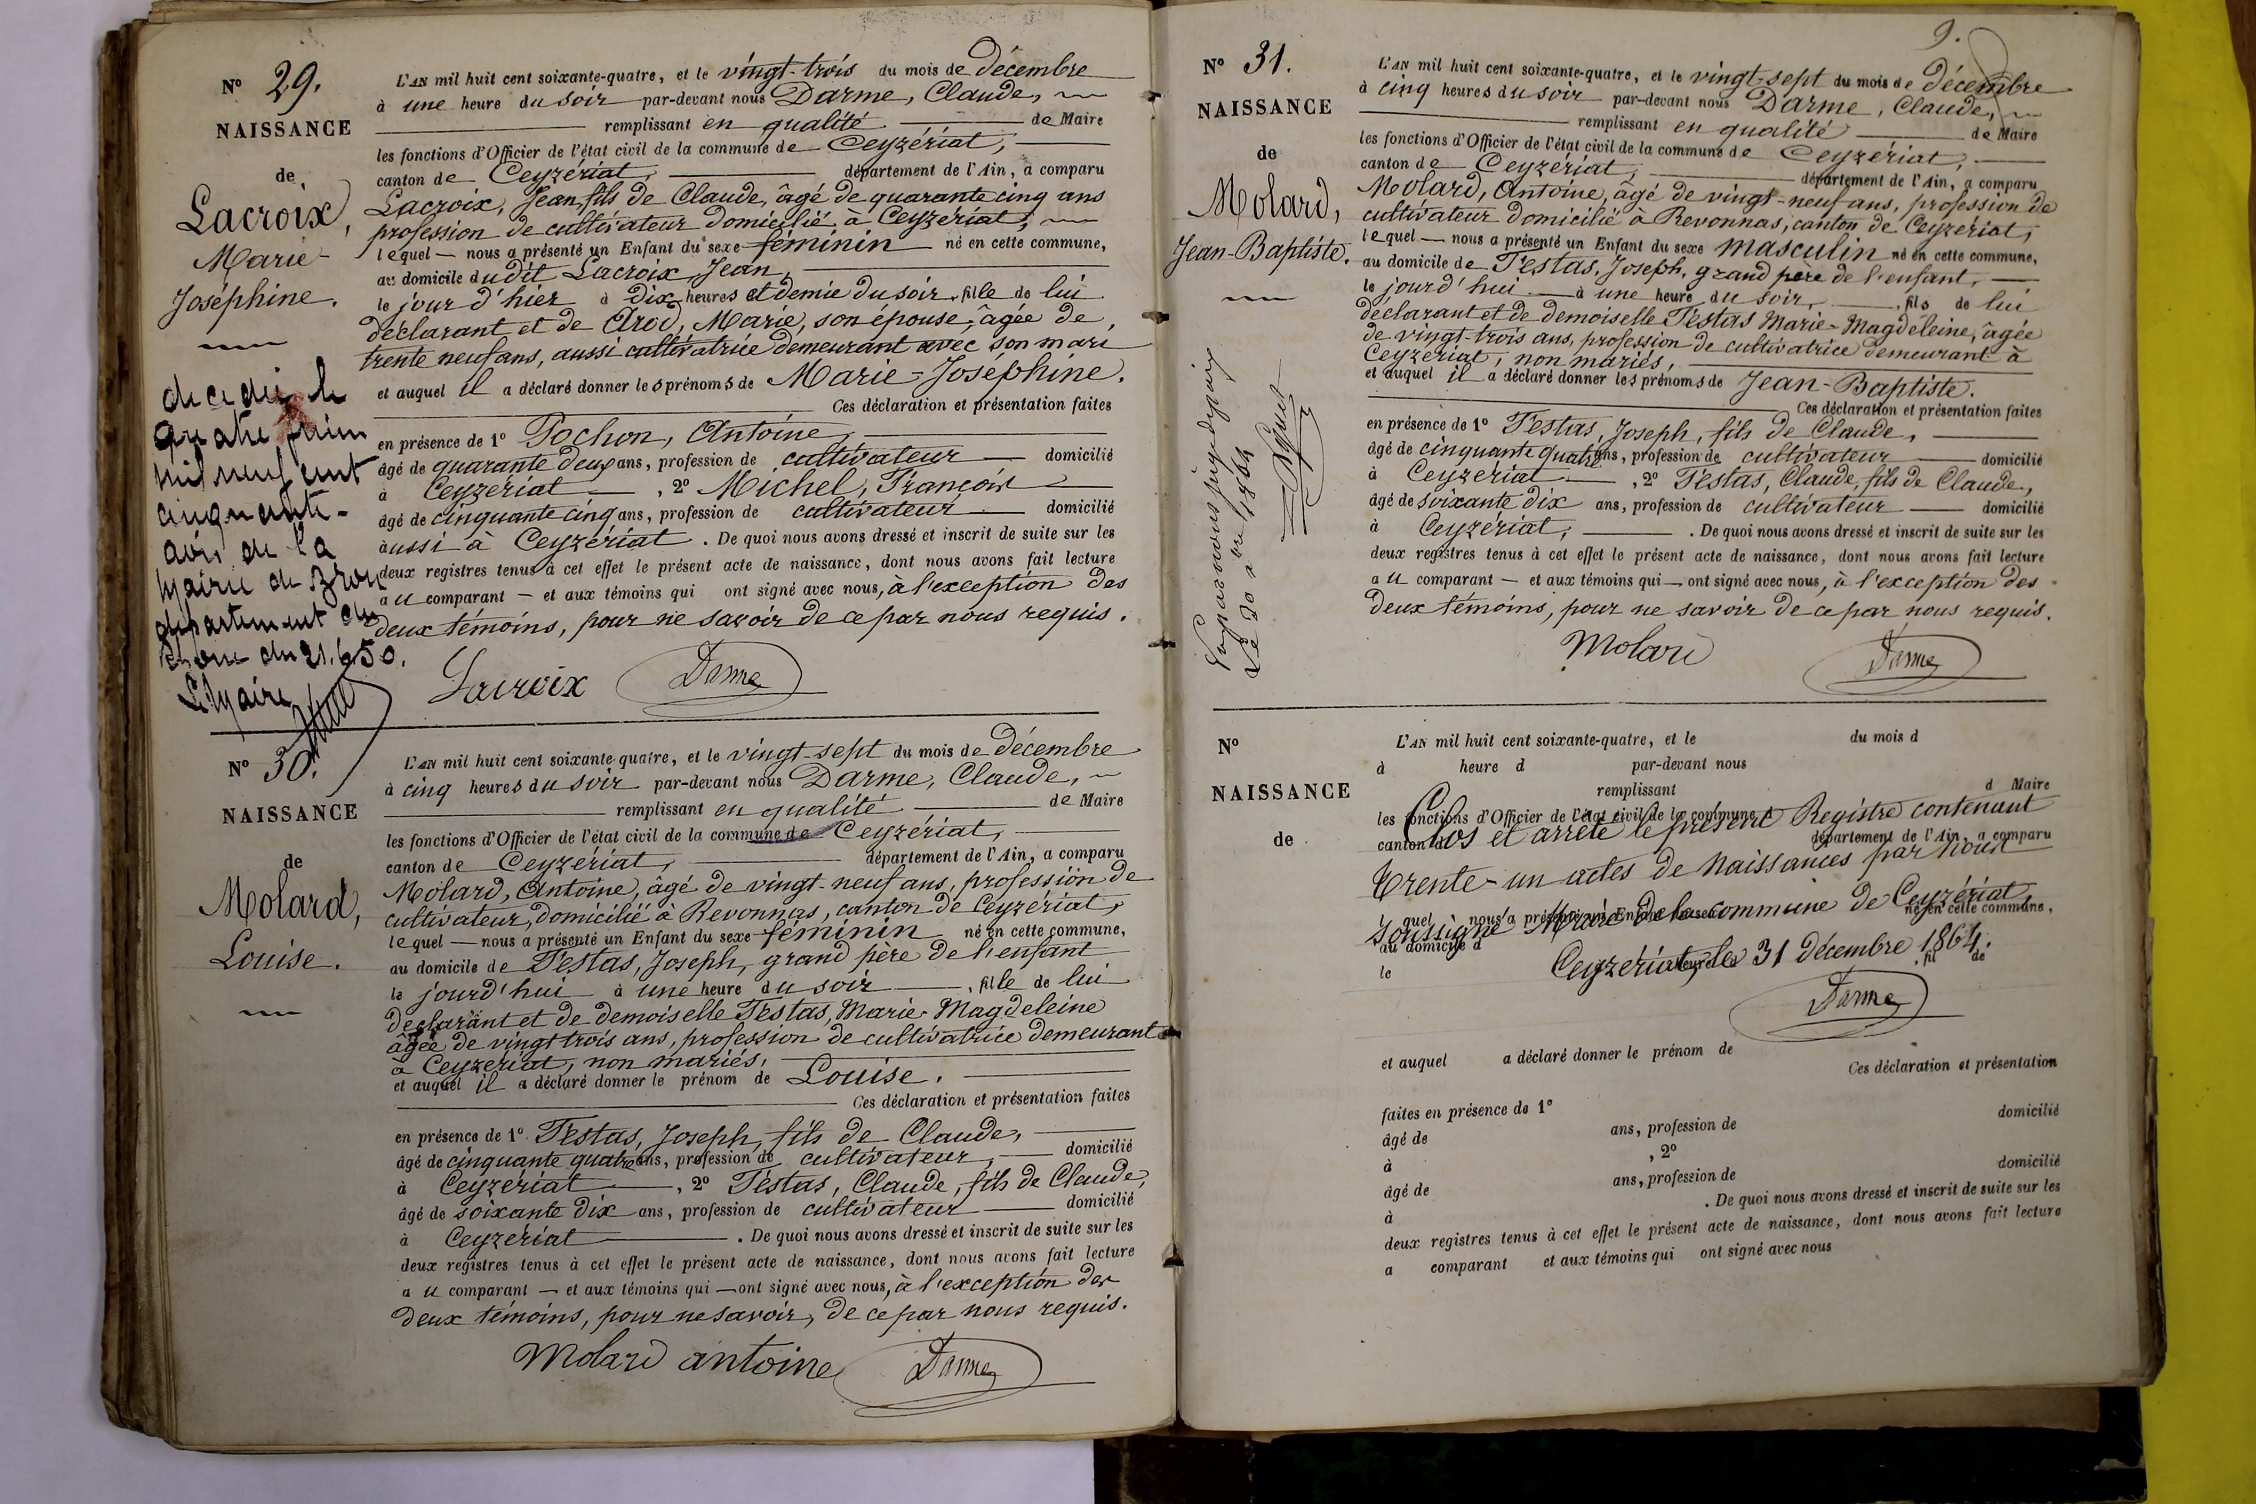 N° 29.
NAISSANCE
de
Lacroix,
Marie-
Joséphine.
décédée le
quatre juin
mil neuf cent
cinquante-
avis de la
Mairie de Bron
département du
Rhône du 21.6.50.
Le Maire
L'AN mil huit cent soixante-quatre, et le vingt-trois du mois de décembre
à une heure du soir par-devant nous Darme, Claude,
remplissant en qualité de Maire
les fonctions d'Officier de l'état civil de la commune de Ceyzériat,
canton de Ceyzériat, département de l'Ain, a comparu
Lacroix, Jean fils de Claude, âgé de quarante cinq ans
profession de cultivateur domicilié à Ceyzériat,
lequel — nous a présenté un Enfant du sexe féminin né en cette commune,
au domicile dudit Lacroix Jean,
le jour d'hier à dix heures et demie du soir, fille de lui
déclarant et de Arod, Marie, son épouse, âgée de,
trente neuf ans, aussi cultivatrice demeurant avec son mari
et auquel il a déclaré donner les prénoms de Marie-Joséphine.
Ces déclaration et présentation faites
en présence de 1° Pochon, Antoine,
âgé de quarante deux ans, profession de cultivateur — domicilié
à Ceyzériat — , 2° Michel, François
âgé de cinquante cinq ans, profession de cultivateur domicilié
aussi à Ceyzériat . De quoi nous avons dressé et inscrit de suite sur les
deux registres tenus à cet effet le présent acte de naissance, dont nous avons fait lecture
au comparant — et aux témoins qui ont signé avec nous, à l'exception des
deux témoins, pour ne savoir de ce par nous requis.
Lacroix Darme
N° 30.
NAISSANCE
de
Molard,
Louise.
L'AN mil huit cent soixante-quatre, et le vingt-sept du mois de décembre
à cinq heures du soir par-devant nous Darme, Claude,
remplissant en qualité de Maire
les fonctions d'Officier de l'état civil de la commune de Ceyzériat,
canton de Ceyzériat, département de l'Ain, a comparu
Molard, Antoine, âgé de vingt-neuf ans, profession de
cultivateur, domicilié à Revonnas, canton de Ceyzériat,
lequel — nous a présenté un Enfant du sexe féminin né en cette commune,
au domicile de Testas, Joseph, grand père de l'enfant
le jourd'hui à une heure du soir , fille de lui
déclarant et de demoiselle Testas, Marie-Magdeleine
âgée de vingt trois ans, profession de cultivatrice demeurant
à Ceyzériat, non mariés,
et auquel il a déclaré donner le prénom de Louise.
Ces déclaration et présentation faites
en présence de 1° Testas, Joseph, fils de Claude,
âgé de cinquante quatre ans, profession de cultivateur, — domicilié
à Ceyzériat — , 2° Testas, Claude, fils de Claude,
âgé de soixante dix ans, profession de cultivateur — domicilié
à Ceyzériat . De quoi nous avons dressé et inscrit de suite sur les
deux registres tenus à cet effet le présent acte de naissance, dont nous avons fait lecture
au comparant — et aux témoins qui — ont signé avec nous, à l'exception des
deux témoins, pour ne savoir, de ce par nous requis.
Molard antoine Darme
9.
N° 31.
NAISSANCE
de
Molard,
Jean-Baptiste.
L'AN mil huit cent soixante-quatre, et le vingt-sept du mois de décembre
à cinq heures du soir par-devant nous Darme, Claude,
remplissant en qualité de Maire
les fonctions d'Officier de l'état civil de la commune de Ceyzériat,
canton de Ceyzériat, département de l'Ain, a comparu
Molard, Antoine, âgé de vingt-neuf ans, profession de
cultivateur domicilié à Revonnas, canton de Ceyzériat,
lequel — nous a présenté un Enfant du sexe masculin né en cette commune,
au domicile de Testas, Joseph, grand père de l'enfant,
le jourd'hui — à une heure du soir, , fils de lui
déclarant et de demoiselle Testas Marie-Magdeleine, âgée
de vingt-trois ans, profession de cultivatrice demeurant à
Ceyzériat, non mariés,
et auquel il a déclaré donner les prénoms de Jean-Baptiste.
Ces déclaration et présentation faites
en présence de 1° Testas, Joseph, fils de Claude,
âgé de cinquante quatre ans, profession de cultivateur — domicilié
à Ceyzériat — , 2° Testas, Claude, fils de Claude,
âgé de soixante dix ans, profession de cultivateur — domicilié
à Ceyzériat, . De quoi nous avons dressé et inscrit de suite sur les
deux registres tenus à cet effet le présent acte de naissance, dont nous avons fait lecture
au comparant — et aux témoins qui — ont signé avec nous, à l'exception des
deux témoins, pour ne savoir de ce par nous requis.
Molard Darme
N°
NAISSANCE
de
L'AN mil huit cent soixante-quatre, et le du mois d
à heure d par-devant nous
remplissant d Maire
les fonctions d'Officier de l'état civil de la commune d
canton d département de l'Ain, a comparu
Clos et arrêté le présent Registre contenant
Trente-un actes de Naissances par nous
l quel nous a présenté un Enfant du sexe né en cette commune,
soussigné Maire de la commune de Ceyzériat,
au domicile d
le heure d , fil de
Ceyzériat, le 31 décembre 1864.
Darme
et auquel a déclaré donner le prénom de
Ces déclaration et présentation
faites en présence de 1° domicilié
âgé de ans, profession de
à , 2°
âgé de ans, profession de domicilié
à . De quoi nous avons dressé et inscrit de suite sur les
deux registres tenus à cet effet le présent acte de naissance, dont nous avons fait lecture
a comparant et aux témoins qui ont signé avec nous